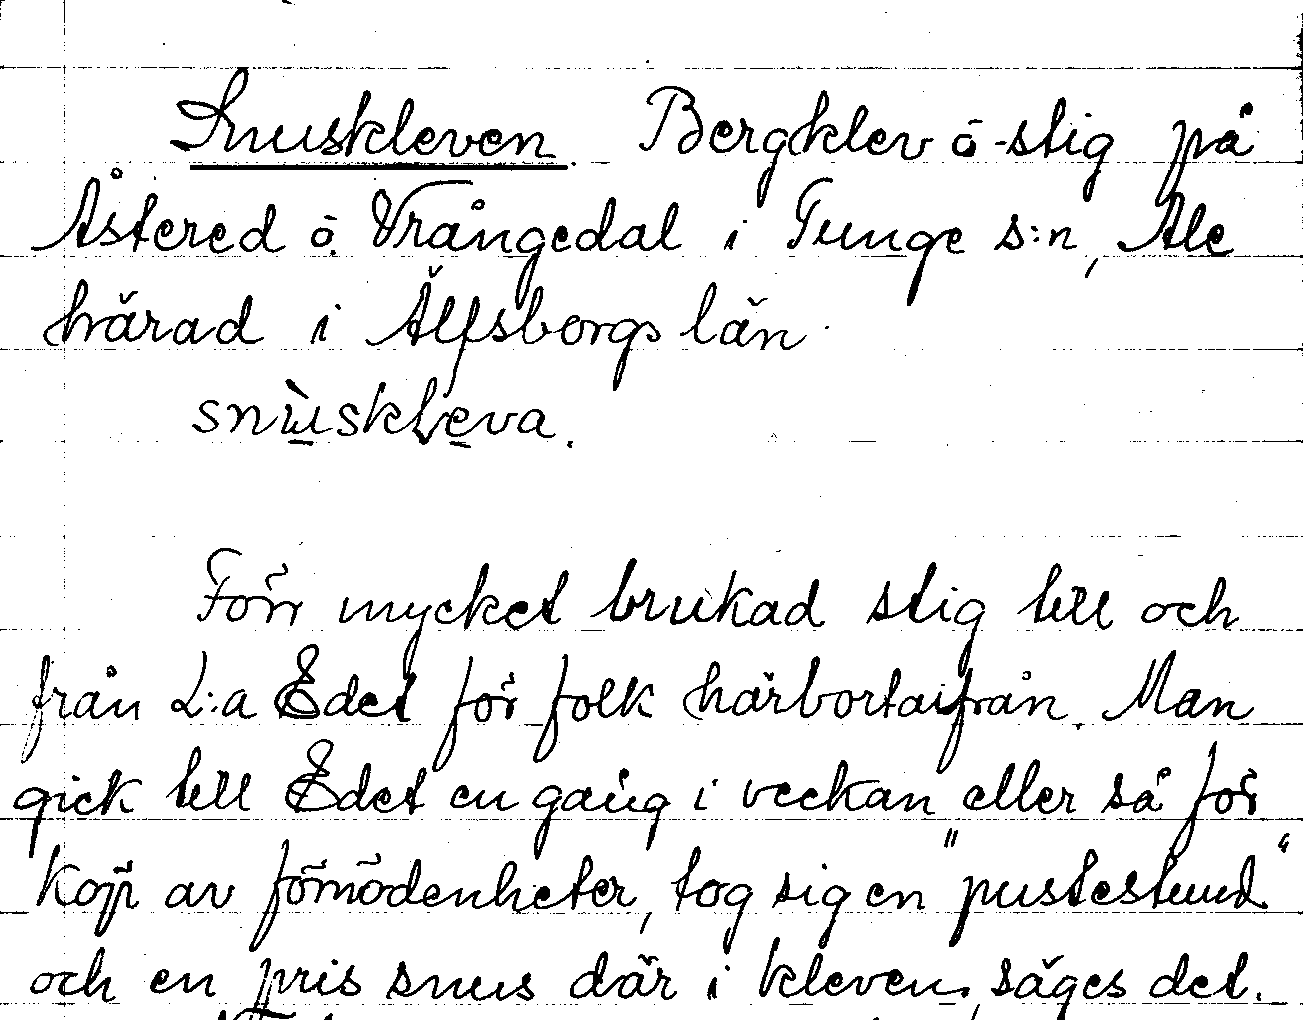 Snuskleven. Bergklev o -stig på
Åstered o. Vrångedal i Tunge s:n, Ale
härad i Älfsborgs län.
snùskleva.
Förr mycket brukad stig till och
från L:a Edet för folk härbortaifrån. Man
gick till Edet en gång i veckan eller så för
köp av förnödenheter, tog sig en "pustestund"
och en pris snus där i kleven, säges det.